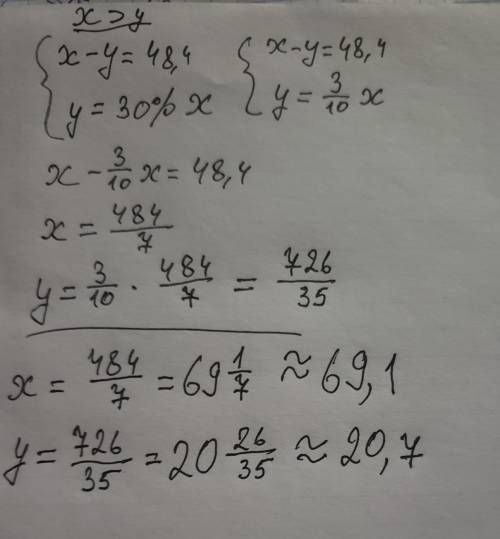 x > y
{ x - y = 48,4 { x - y = 48,4
y = 30% x y = 3/10 x
x - 3/10 x = 48,4
x = 484/7
y = 3/10 · 484/7 = 726/35
x = 484/7 = 69 1/7 ≈ 69,1
y = 726/35 = 20 26/35 ≈ 20,7